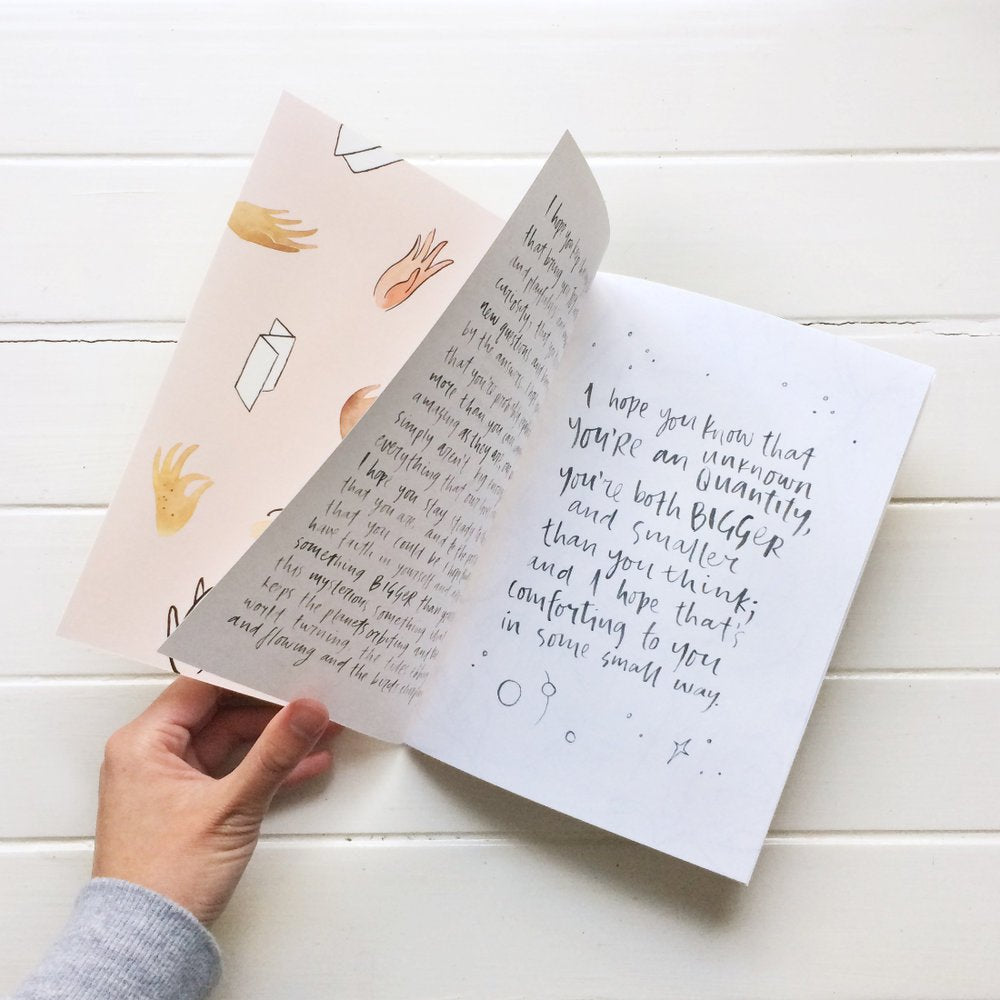 I hope you
that bring you
and playful
curiosity, that you
new questions and
by the answers. I
that you're probably
more than you can
amazing as they are,
simply aren't big enough
everything that
I hope you stay
that you are, and to the
that you could be. I hope
have faith in yourself and
something BIGGER than you
this mysterious something that
keeps the planets orbiting and the
world turning, the tide
and flowing and the birds
I hope you know that
you're an unknown
quantity,
you're both BIGGER
and smaller
than you think;
and I hope that's
comforting to you
in some small way.